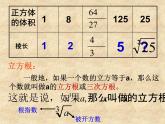 正方体的体积 1 8 64/27 125 25
棱长 1 2 5 ∛25
立方根:
一般地,如果一个数的立方等于a,那么这个数就叫做a的立方根或三次方根.
这就是说,如果
那么 叫做 的立方根
根指数
被开方数